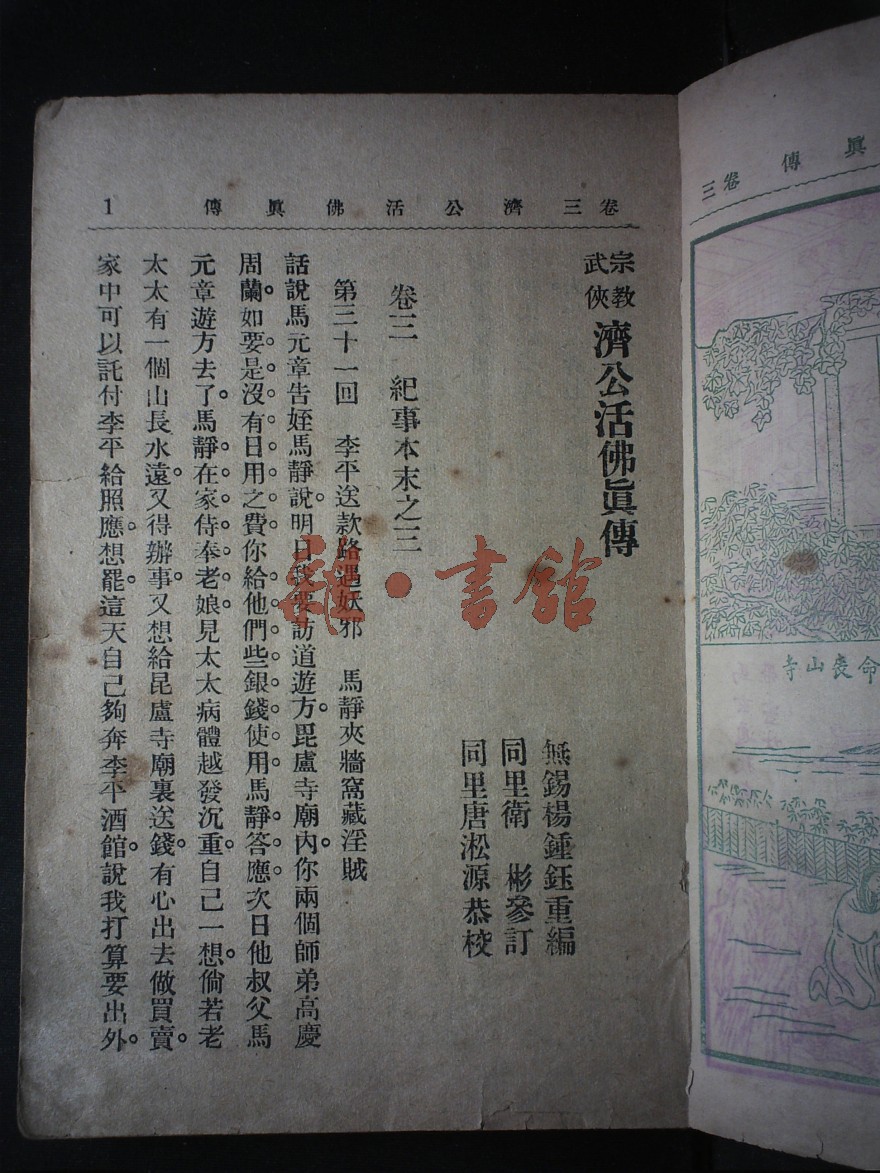 卷三 濟公活佛眞傳 1
宗教
武俠
濟公活佛眞傳
無錫楊鍾鈺重編
同里衛 彬參訂
同里唐淞源恭校
卷三 紀事本末之三
第三十一回 李平送款路遇妖邪 馬靜夾牆窩藏淫賊
話說馬元章告姪馬靜說。明日我要訪道遊方。毘盧寺廟內。你兩個師弟高慶
周蘭。如要是沒有日用之費。你給他們些銀錢使用。馬靜答應。次日他叔父馬
元章遊方去了。馬靜在家侍奉老娘。見太太病體越發沉重。自己一想。倘若老
太太有一個山長水遠。又得辦事。又想給昆盧寺廟裏送錢。有心出去做買賣。
家中可以託付李平給照應。想罷。這天自己夠奔李平酒館。說我打算要出外。
龍·書館
卷三
傳
眞
命喪山寺